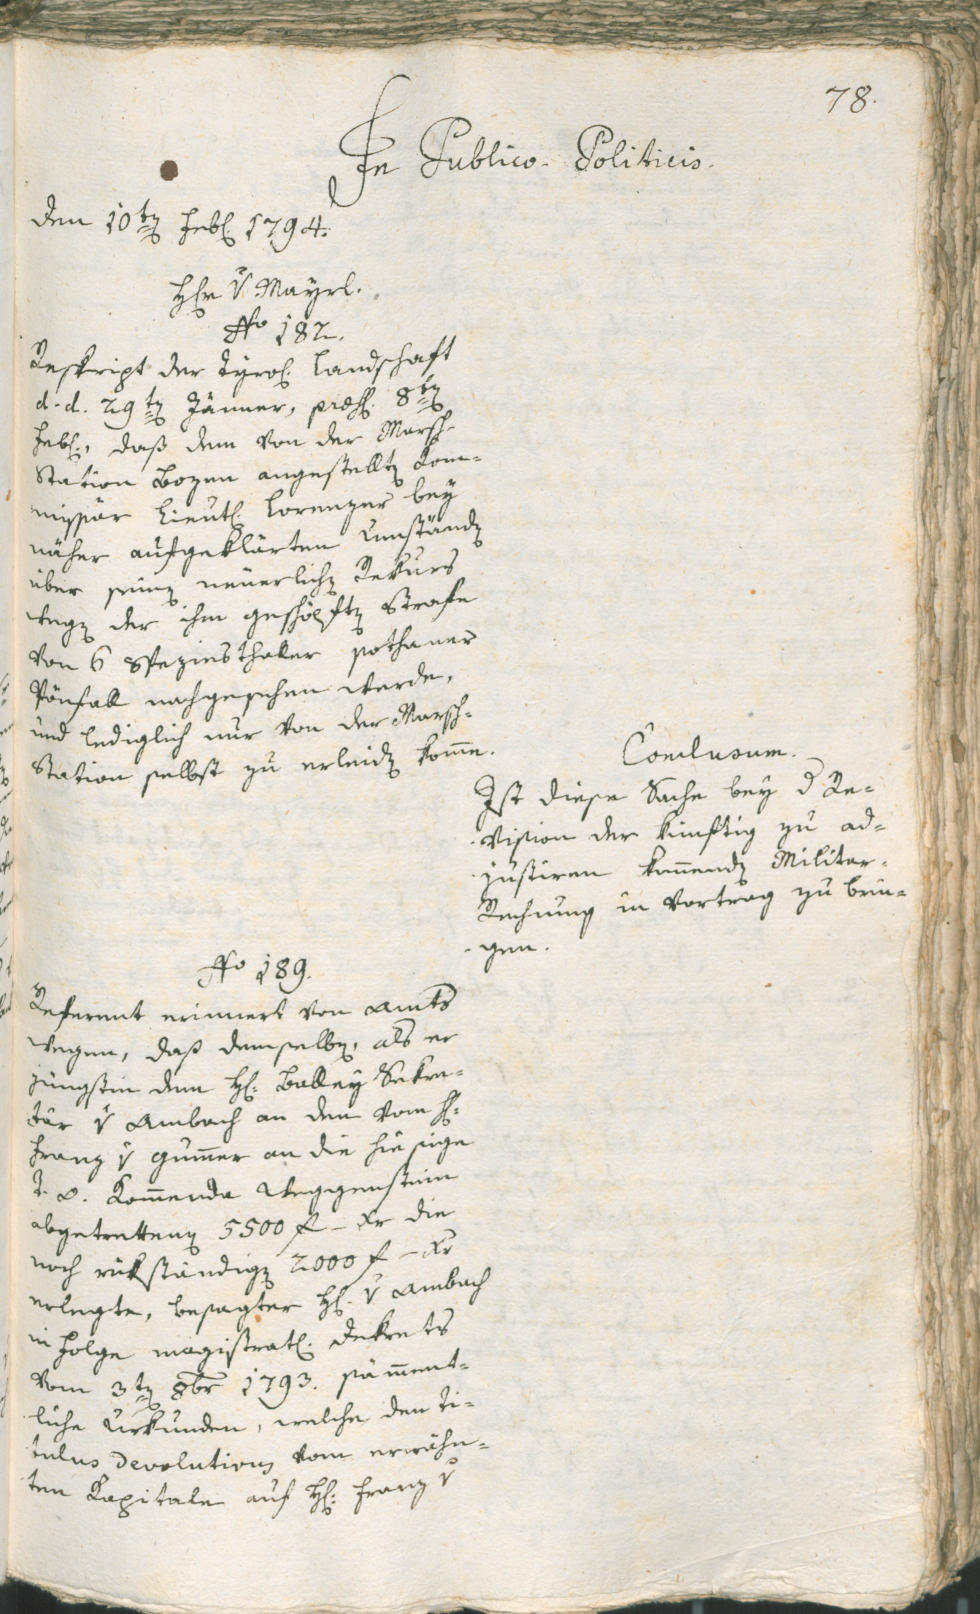 78.
In Publico-Politicis.
den 10tn Feb. 1794.
Hr v Mayrl.
No 182.
Reskript der Tyrol. Landschaft
d. d. 29tn Jänner, præs. 8tn
Feb., daß dem von der Marsch-
Station Bozen angestelltn Kom-
missär Lieut. Lorenzer bey
näher aufgeklärten Umständn
über seinn neuerlichn Rekurs
wegn der ihm geschöpftn Strafe
von 6 Speziesthaler sothaner
Pönfall nachgesehen werde,
und lediglich nur von der Marsch-
Station selbst zu erleidn komme.
Conclusum.
Ist diese Sache bey d Re-
vision der künftig zu ad-
justiren kommendn Militar-
Rechnung in Vortrag zu brin-
gen.
No 189.
Referent erinnert von Amts
wegen, daß demselbn, als er
jüngstin dem H. Balley Sekre-
tär v Ambach an den vom H.
Franz v Gummer an die hiesige
T. O. Kommenda Weggenstein
abgetrettenn 5500 f – xr die
noch rükständign 2000 f – xr
erlegte, besagter H. v Ambach
in Folge magistratl. Dekrets
vom 3tn 8br 1793. sämment-
liche Urkunden, welche den Ti-
tulus Devolutions vom erwähn-
ten Kapitale auf H. Franz v